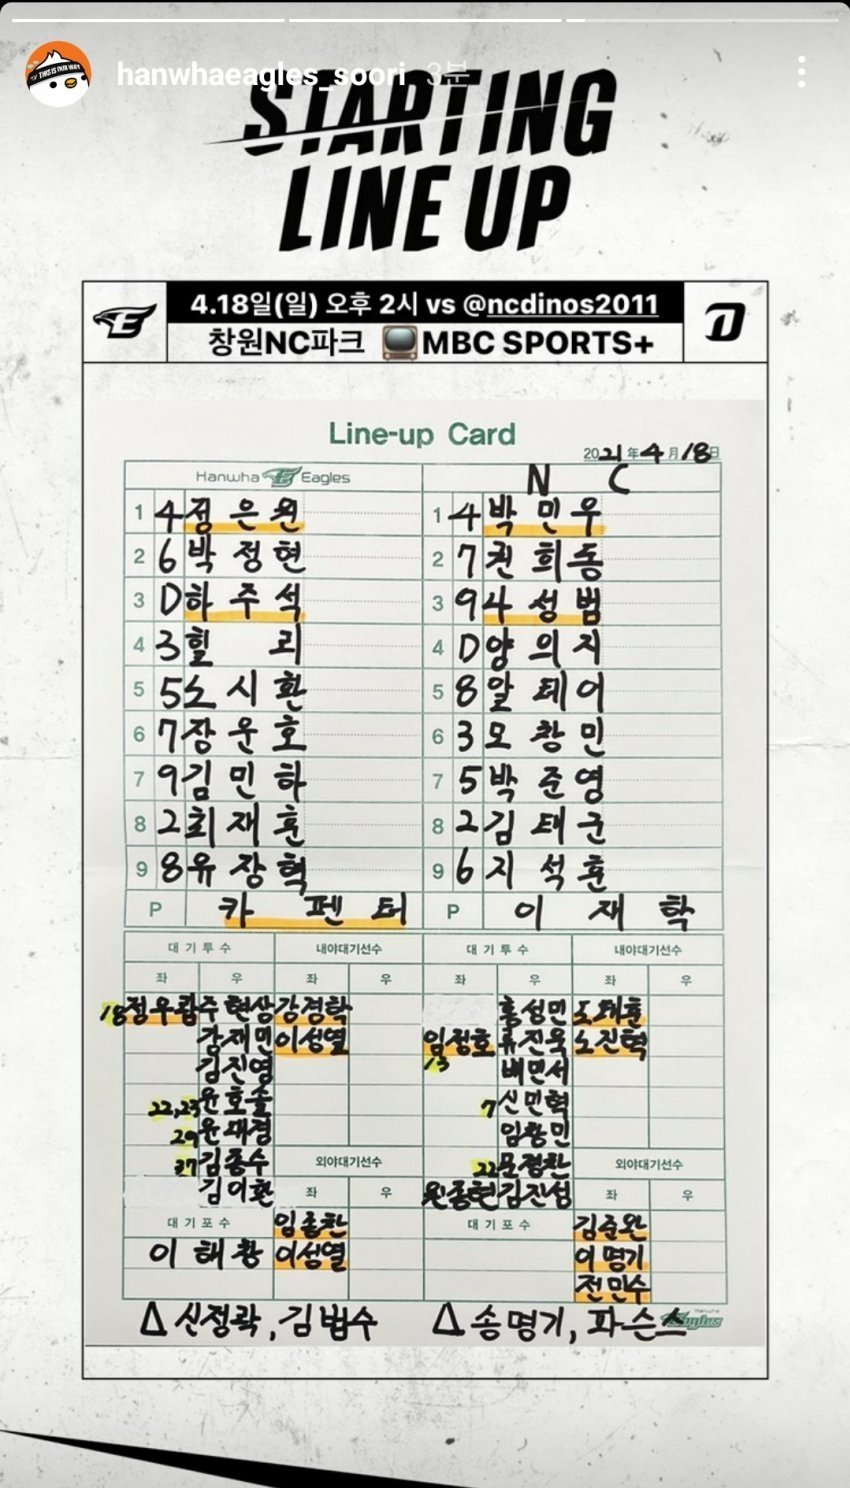 hanwhaeagles_soori 3분
STARTING
LINE UP
4.18일(일) 오후 2시 vs @ncdinos2011
창원NC파크 MBC SPORTS+
Line-up Card
2021年 4月 18日
Hanwha Eagles N C
1 4 정은원 1 4 박민우
2 6 박정현 2 7 권희동
3 D 하주석 3 9 나성범
4 3 힐리 4 D 양의지
5 5 노시환 5 8 알테어
6 7 장운호 6 3 모창민
7 9 김민하 7 5 박준영
8 2 최재훈 8 2 김태군
9 8 유장혁 9 6 지석훈
P 카펜터 P 이재학
대기투수 내야대기선수 대기투수 내야대기선수
좌 우 좌 우 좌 우 좌 우
18 정우람 주현상 강경학 홍성민 도태훈
강재민 이성열 임정호 류진욱 노진혁
김진영 13 배민서
22,23 윤호솔 7 신민혁
29 윤대경 임창민
37 김종수 외야대기선수 22 문경찬 외야대기선수
김이환 좌 우 원종현 김진성 좌 우
대기포수 임종찬 대기포수 김준완
이해창 이성열 이명기
전민수
Δ 신정락, 김범수 Δ 송명기, 파슨스
Hanwha Eagles